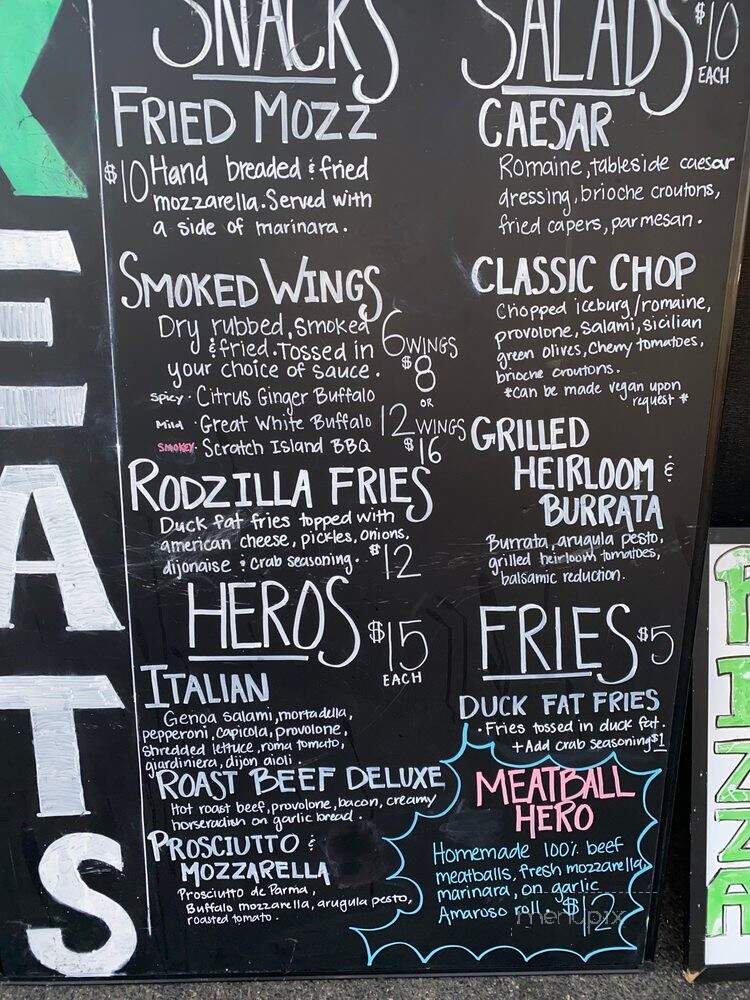 SNACKS
FRIED MOZZ
$10 Hand breaded & fried
mozzarella. Served with
a side of marinara.
SMOKED WINGS
Dry rubbed, smoked
& fried. Tossed in
your choice of sauce.
Spicy · Citrus Ginger Buffalo
Mild · Great White Buffalo
SMOKEY · Scratch Island BBQ
6 WINGS
$8
OR
12 WINGS
$16
RODZILLA FRIES
Duck fat fries topped with
american cheese, pickles, onions,
dijonaise & crab seasoning. $12
HEROS $15
EACH
ITALIAN
Genoa salami, mortadella,
pepperoni, capicola, provolone,
shredded lettuce, roma tomato,
giardiniera, dijon aioli.
ROAST BEEF DELUXE
Hot roast beef, provolone, bacon, creamy
horseradish on garlic bread.
PROSCIUTTO &
MOZZARELLA
Prosciutto de Parma,
Buffalo mozzarella, arugula pesto,
roasted tomato.
SALADS $10
EACH
CAESAR
Romaine, tableside caesar
dressing, brioche croutons,
fried capers, parmesan.
CLASSIC CHOP
Chopped iceburg/romaine,
provolone, salami, sicilian
green olives, Cherry tomatoes,
brioche croutons.
*can be made vegan upon
request *
GRILLED
HEIRLOOM &
BURRATA
Burrata, arugula pesto,
grilled heirloom tomatoes,
balsamic reduction.
FRIES $5
DUCK FAT FRIES
· Fries tossed in duck fat.
+ Add crab seasoning $1
MEATBALL
HERO
Homemade 100% beef
meatballs, fresh mozzarella,
marinara, on garlic
Amaroso roll. $12
EATS
PIZZA
menupix